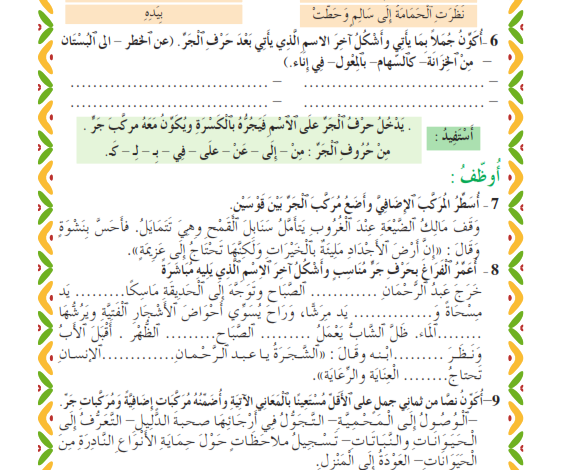 نَظَرَتِ ٱلْحَمَامَةُ إِلَى سَالِمٍ وَحَطَّتْ
بِيَدِهِ
6 -أُكَوِّنُ جُمَلاً بِمَا يَأْتِي وَأَشْكُلُ آخِرَ الاسمِ الَّذِي يَأْتِي بَعْدَ حَرْفِ ٱلْجَرِّ. (عن الخطر – الى البُسْتان
– مِنْ الخِزَانَة- كـالسِّهام- بالمِعْول- فِي إِنَاء.)
– .................................... – ....................................
– .................................... – ....................................
أَسْتَفِيدُ :
. يَدْخُلُ حَرْفُ ٱلْجَرِّ عَلَى ٱلاِسْمِ فَيَجُرُّهُ بِٱلْكَسْرَةِ ويُكَوِّنُ مَعَهُ مركَّبَ جَرٍّ .
مِنْ حُرُوفِ ٱلْجَرِّ : مِنْ – إِلَى – عَنْ – عَلَى – فِي – بِـ – لِـ – كَـ.
أُوظِّفُ :
7 - أُسَطِّرُ المركَّبَ ٱلإِضَافِيَّ وأَضَعُ مُرَكَّبَ ٱلْجَرِّ بَيْنَ قَوْسَيْنِ.
وَقَفَ مَالِكُ الضَّيْعَةِ عِنْدَ ٱلْغُرُوبِ يَتَأَمَّلُ سَنَابِلَ ٱلْقَمْحِ وهِيَ تَتَمَايَلُ. فأَحَسَّ بِنَشْوَةٍ
وَقَالَ : «إِنَّ أَرْضَ ٱلأَجْدَادِ مَلِيئَةٌ بِٱلْخَيْرَاتِ وَلَكِنَّهَا تَحْتَاجُ إِلَى عَزِيمَةٍ».
8 - أُعَمِّرُ ٱلْفَرَاغَ بِحَرْفِ جَرٍّ مُنَاسِبٍ وأَشْكُلُ آخِرَ ٱلاِسْمِ ٱلَّذِي يَلِيهِ مُبَاشَرَةً
خَرَجَ عَبْدُ الرَّحْمَانِ ............ الصَّبَاح وتَوَجَّهَ إِلَى ٱلْحَدِيقَةِ مَاسِكًا......... يَد
مِسْحَاةً و.............. يَد مِرَشًّا، وَرَاحَ يُسَوِّي أَحْوَاضَ ٱلأَشْجَارِ ٱلْفَتِيَّةِ ويَرُشُّهَا
........ٱلْمَاء. ظَلَّ الشَّابُّ يَعْمَلُ ........ الصَّبَاح.......... الظُّهْر . أَقْبَلَ ٱلأَبُ
وَنَـظَـرَ ......... ابْـنـه وقَـالَ : «الشَّـجَـرَةُ يـا عـبـد الـرَّحْـمَـانِ..........ٱلإنسـان
تَحتاجُ........ العِنَايَة والرِّعَايَة».
9–أُكَوِّنُ نَصًّا مِن ثمانِي جملٍ عَلَى ٱلأَقَلِّ مُسْتَعِينًا بٱلْمَعَانِي ٱلآتِيَةِ وأُضَمِّنُهُ مُرَكَّبَاتٍ إِضَافِيَّةً وَمُرَكَّبَاتِ جَرٍّ.
–ٱلْوُصُولُ إِلَى ٱلْمَحْمِيَّةِ– التَّجَوُّلُ فِي أَرْجَائِهَا صحبةَ الدَّلِيلِ– التَّعَرُّفُ إِلَى
ٱلْحَيَوَانَاتِ والنَّبَاتَاتِ– تَسْجِيلُ مُلَاحَظَاتٍ حَوْلَ حِمَايَةِ ٱلأَنْوَاعِ النَّادِرَةِ مِنَ
ٱلْحَيَوَانَاتِ– ٱلْعَوْدَةُ إِلَى ٱلْمَنْزِلِ.